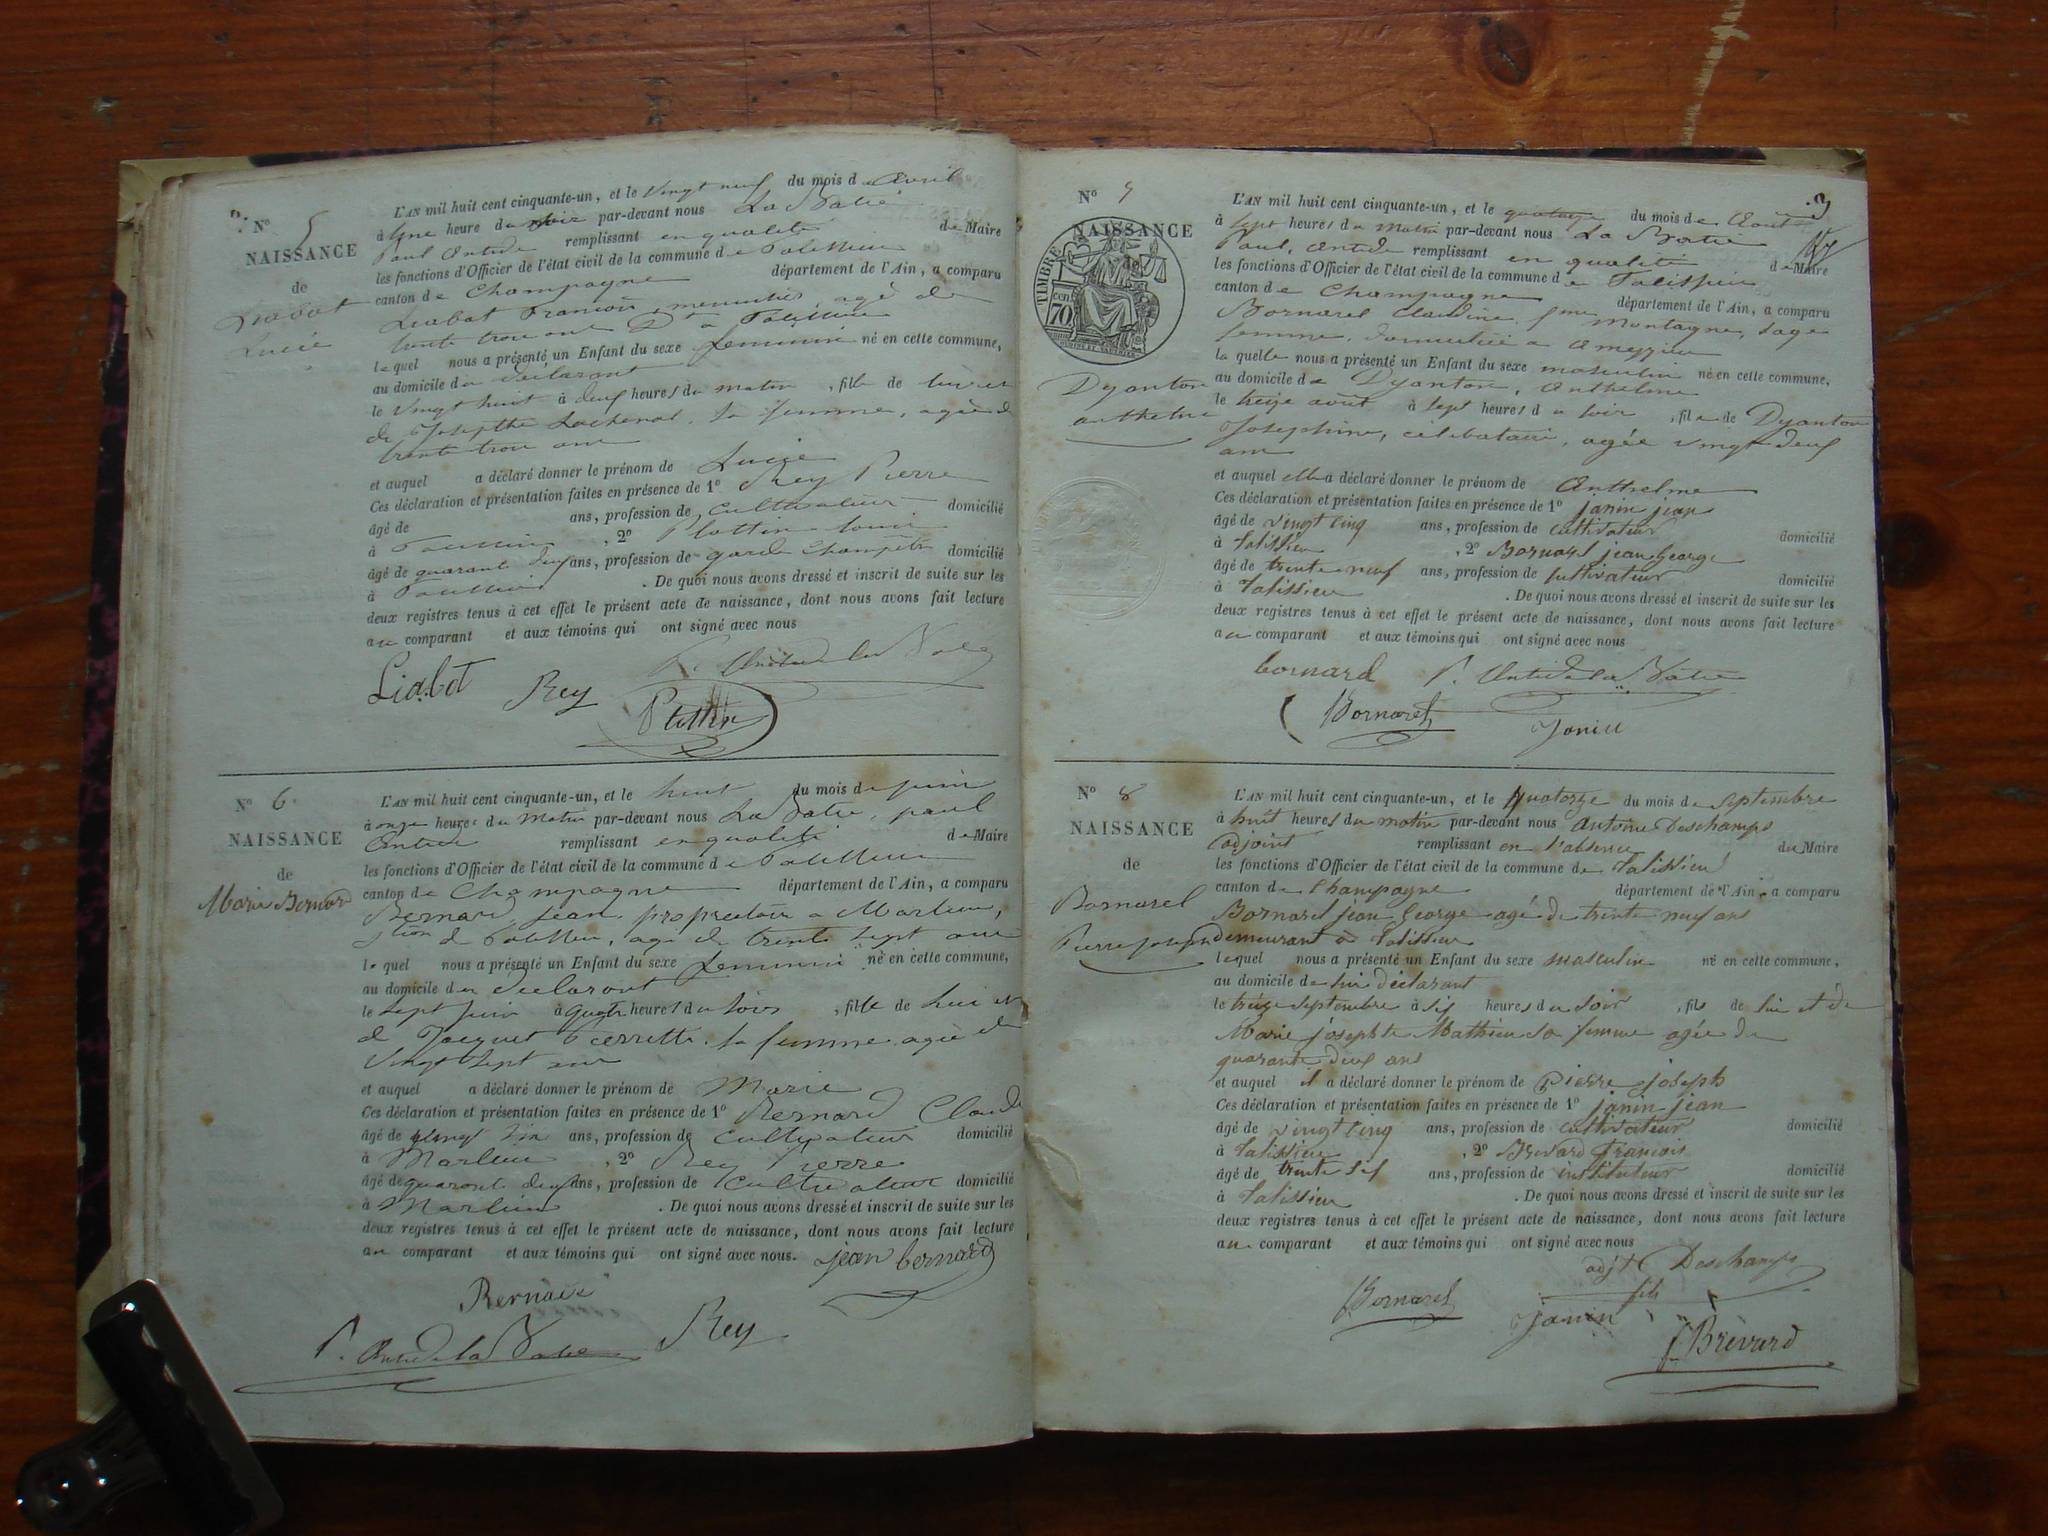 N° 5
NAISSANCE
de
Liabot
Lucie
L'AN mil huit cent cinquante-un, et le vingt neuf du mois d'avril
à Une heure du soir par-devant nous La Batie
Paul Antide remplissant en qualité de Maire
les fonctions d'Officier de l'état civil de la commune de Talissieu
canton de Champagne département de l'Ain, a comparu
Liabot François, menuisier, agé de
trente trois ans Dt a Talissieu
lequel nous a présenté un Enfant du sexe feminin né en cette commune,
au domicile du déclarant
le vingt huit à deux heures du matin, fille de lui et
de Josephte Lachenal, sa femme, agée de
trente trois ans
et auquel a déclaré donner le prénom de Lucie
Ces déclaration et présentation faites en présence de 1° Rey Pierre
âgé de ans, profession de cultivateur domicilié
à Talissieu, 2° Plottin Louis
âgé de quarant deux ans, profession de garde champêtre domicilié
à Talissieu. De quoi nous avons dressé et inscrit de suite sur les
deux registres tenus à cet effet le présent acte de naissance, dont nous avons fait lecture
au comparant et aux témoins qui ont signé avec nous
Liabot Rey P. Antide la Batie
Plottin
N° 6
NAISSANCE
de
Marie Bernard
L'AN mil huit cent cinquante-un, et le huit du mois de juin
à onze heures du matin par-devant nous La Batie, paul
Antide remplissant en qualité de Maire
les fonctions d'Officier de l'état civil de la commune de Talissieu
canton de Champagne département de l'Ain, a comparu
Bernard, jean, propriétaire a Marlieu,
de Talissieu, agé de trente sept ans
lequel nous a présenté un Enfant du sexe feminin né en cette commune,
au domicile du déclarant
le sept juin à quatre heures du soir, fille de lui et
de Jacquet Pierrette, sa femme agée de
vingt sept ans
et auquel a déclaré donner le prénom de Marie
Ces déclaration et présentation faites en présence de 1° Bernard Claude
âgé de ans, profession de cultivateur domicilié
à Marlieu, 2° Rey Pierre
âgé de quarant deux ans, profession de cultivateur domicilié
à Marlieu. De quoi nous avons dressé et inscrit de suite sur les
deux registres tenus à cet effet le présent acte de naissance, dont nous avons fait lecture
au comparant et aux témoins qui ont signé avec nous. jean bernard
Bernard
P. Antide la Batie Rey
3
N° 7
NAISSANCE
TIMBRE
70
Dyanton
anthelme
L'AN mil huit cent cinquante-un, et le quatorze du mois de Août
à sept heures du matin par-devant nous La Batie
Paul, Antide remplissant en qualité de Maire
les fonctions d'Officier de l'état civil de la commune de Talissieu
canton de Champagne département de l'Ain, a comparu
Bornarel Claudine fme Montagne, sage
femme, domiciliée a Ameyzieu
la quelle nous a présenté un Enfant du sexe masculin né en cette commune,
au domicile de Dyanton, Anthelme
le treize août à sept heures du soir, fils de Dyanton
Josephine, célibataire, agée vingt deux
ans
et auquel elle a déclaré donner le prénom de Anthelme
Ces déclaration et présentation faites en présence de 1° janin jean
âgé de vingt cinq ans, profession de cultivateur domicilié
à Talissieu, 2° Bornarel jean George
âgé de trente neuf ans, profession de cultivateur domicilié
à Talissieu. De quoi nous avons dressé et inscrit de suite sur les
deux registres tenus à cet effet le présent acte de naissance, dont nous avons fait lecture
au comparant et aux témoins qui ont signé avec nous
bornard P. Antide la Batie
Bornarel Janin
N° 8
NAISSANCE
de
Bornarel
Pierre joseph
L'AN mil huit cent cinquante-un, et le quatorze du mois de Septembre
à huit heures du matin par-devant nous Antoine Deschamps
adjoint remplissant en l'absence du Maire
les fonctions d'Officier de l'état civil de la commune de Talissieu
canton de Champagne département de l'Ain, a comparu
Bornarel jean George agé de trente neuf ans
demeurant à Talissieu
lequel nous a présenté un Enfant du sexe masculin né en cette commune,
au domicile de lui déclarant
le treize septembre à six heures du soir, fils de lui et de
Marie josephte Mathieu sa femme agée de
quarante deux ans
et auquel il a déclaré donner le prénom de Pierre joseph
Ces déclaration et présentation faites en présence de 1° janin jean
âgé de vingt cinq ans, profession de cultivateur domicilié
à Talissieu, 2° Brevard françois
âgé de trente six ans, profession de instituteur domicilié
à Talissieu. De quoi nous avons dressé et inscrit de suite sur les
deux registres tenus à cet effet le présent acte de naissance, dont nous avons fait lecture
au comparant et aux témoins qui ont signé avec nous
adjt Deschamps
Bornarel Janin fils
f. Brévard